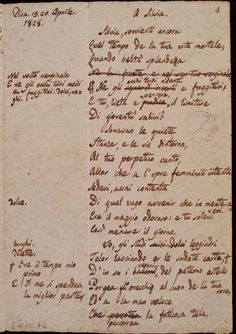 Pisa. 19. 20. Aprile.
1828.
A Silvia.
1
Silvia, sovvienti ancora
Quel tempo de la tua vita mortale,
Quando beltà splendea
Nel volto verginale
Ne la fronte e nel sen tuo verginale,
E ne gli occhi tuoi
e fuggitivi,
occhi tuoi ridenti
E ne gli e fuggitivi
E tu, lieta e pensosa, il limitare
Di gioventù salivi?
Sonavan le quiete
Stanze, e le vie d'intorno,
Al tuo perpetuo canto,
Allor che a l'opre femminili intenta
Sedevi, assai contenta
dolce.
Di quel vago avvenir che in mente avevi
Era il maggio odoroso: e tu solevi
Così menare il giorno.
lunghi.
Io, gli studi miei leggiadri
dilette.
Talor lasciando e le sudate carte,
Ove il tempo mio
primo
E di me si spendea
la miglior parte,
D'in su i del paterno ostello
Porgea gli orecchi al suon de la tua voce,
Ed a la man veloce
Che percotea la faticosa tela.
percorrea